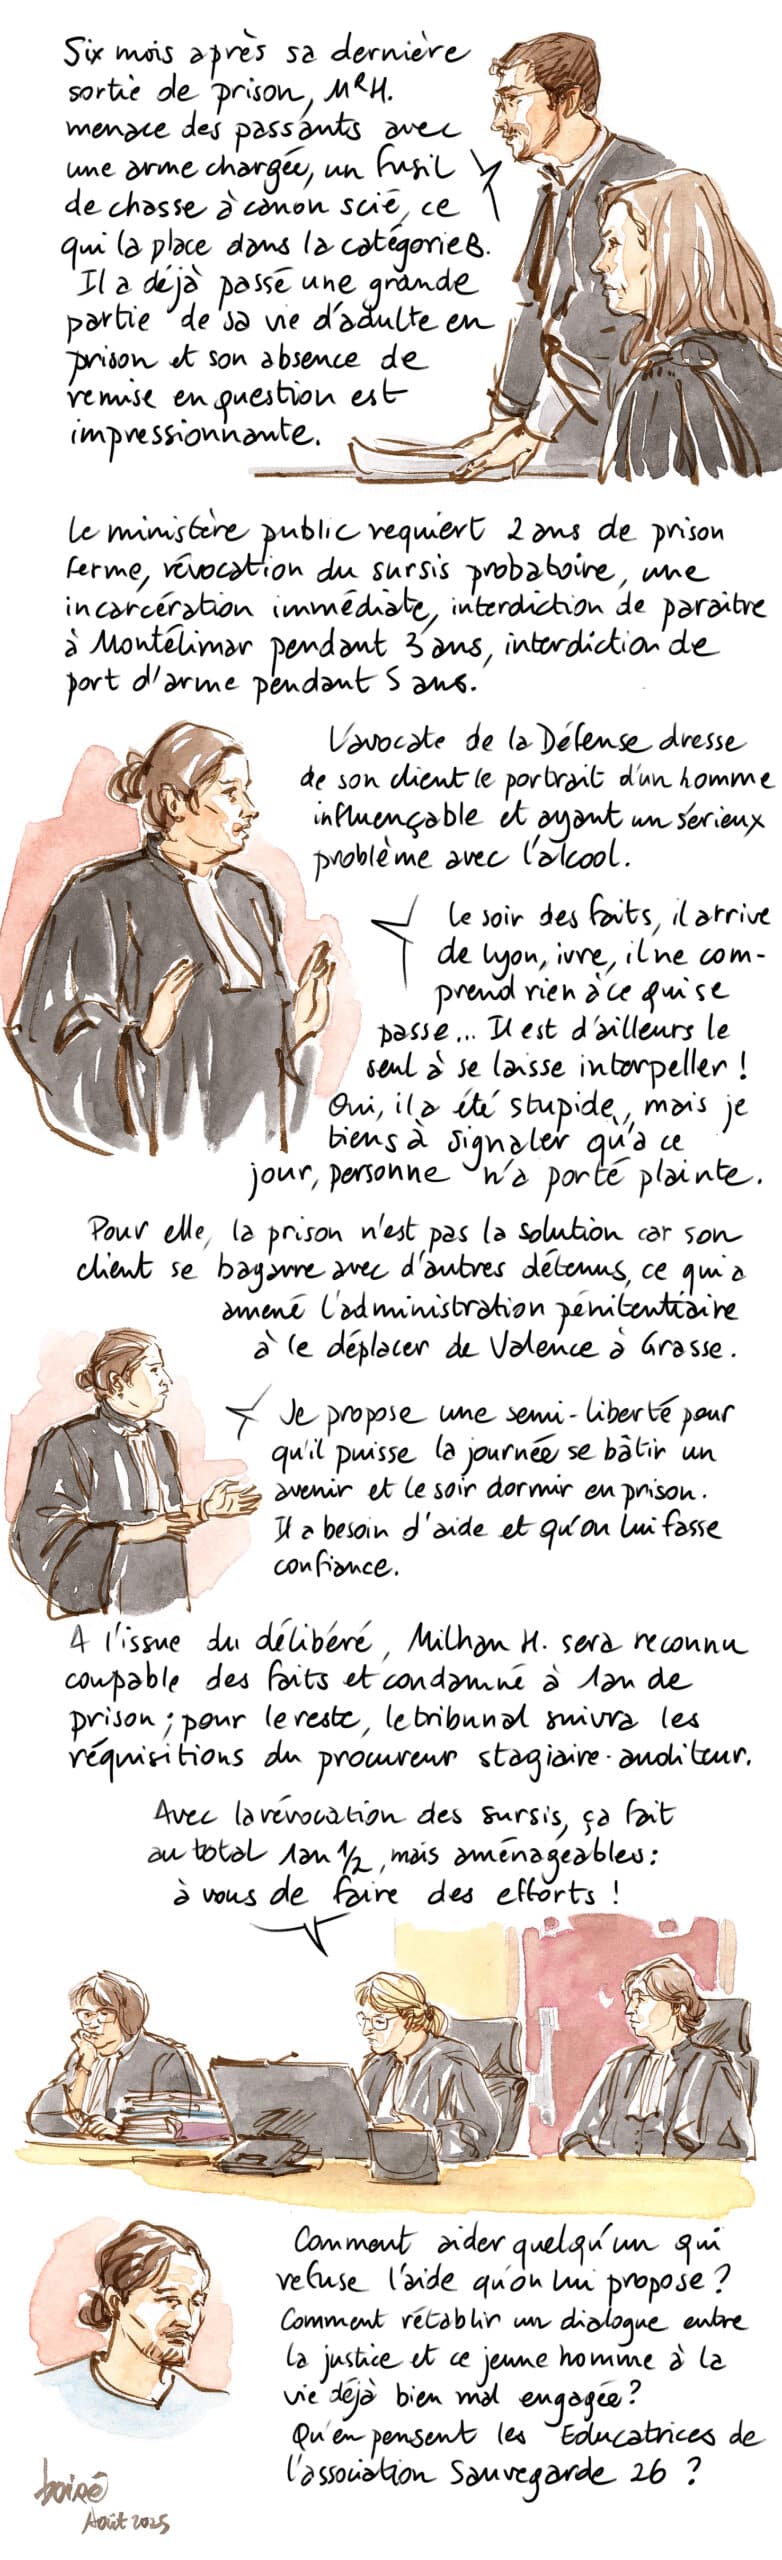 Six mois après sa dernière
sortie de prison, MRH.
menace des passants avec
une arme chargée, un fusil
de chasse à canon scié, ce
qui la place dans la catégorie B.
Il a déjà passé une grande
partie de sa vie d'adulte en
prison et son absence de
remise en question est
impressionnante.
Le ministère public requiert 2 ans de prison
ferme, révocation du sursis probatoire, une
incarcération immédiate, interdiction de paraître
à Montélimar pendant 3 ans, interdiction de
port d'arme pendant 5 ans.
L'avocate de la Défense dresse
de son client le portrait d'un homme
influençable et ayant un sérieux
problème avec l'alcool.
Le soir des faits, il arrive
de Lyon, ivre, il ne com-
prend rien à ce qui se
passe... Il est d'ailleurs le
seul à se laisse interpeller !
Oui, il a été stupide, mais je
tiens à signaler qu'à ce
jour, personne n'a porté plainte.
Pour elle, la prison n'est pas la solution car son
client se bagarre avec d'autres détenus, ce qui a
amené l'administration pénitentiaire
à le déplacer de Valence à Grasse.
Je propose une semi-liberté pour
qu'il puisse la journée se bâtir un
avenir et le soir dormir en prison.
Il a besoin d'aide et qu'on lui fasse
confiance.
A l'issue du délibéré, Milhan H. sera reconnu
coupable des faits et condamné à 1an de
prison ; pour le reste, le tribunal suivra les
réquisitions du procureur stagiaire-auditeur.
Avec la révocation des sursis, ça fait
au total 1an 1/2, mais aménageables :
à vous de faire des efforts !
Comment aider quelqu'un qui
refuse l'aide qu'on lui propose ?
Comment rétablir un dialogue entre
la justice et ce jeune homme à la
vie déjà bien mal engagée ?
Qu'en pensent les Educatrices de
l'association Sauvegarde 26 ?
boirê
Août 2025